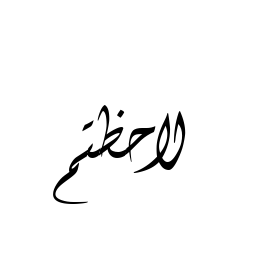 لاحظتم